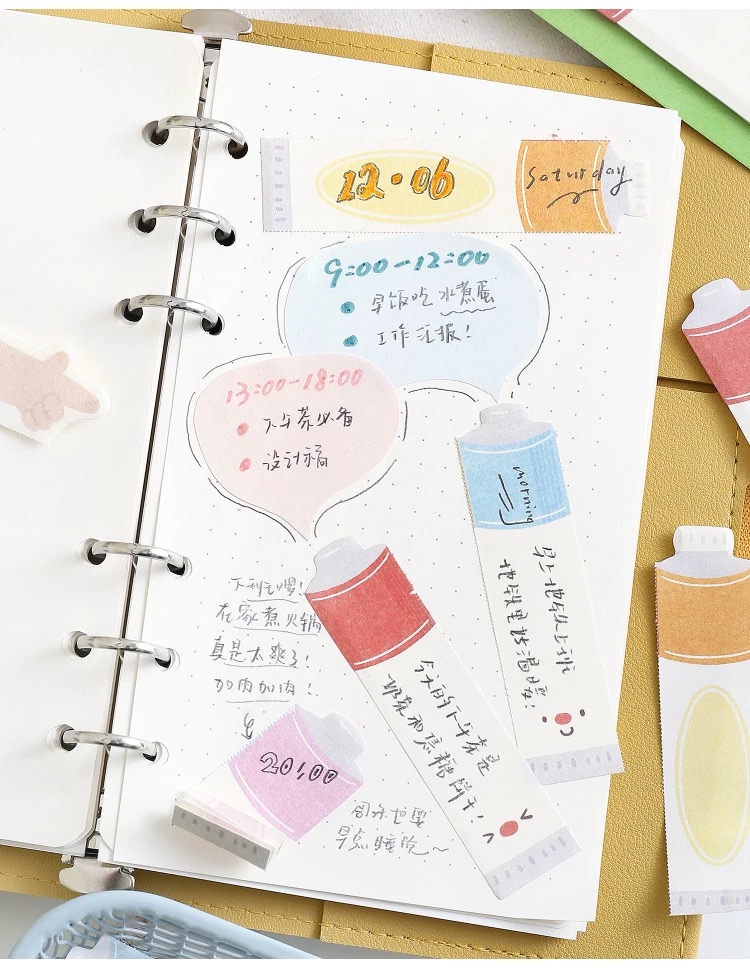 12·06
Saturday
9:00-12:00
早饭吃水煮蛋
工作汇报!
13:00-18:00
下午茶必备
设计稿
morning
早上地铁上班
地铁里好温暖!
今天的下午茶是
奶茶和焦糖饼干!
下班了嘿!
在家煮火锅
真是太爽了!
加肉加肉!
20:00
周末也要
早点睡觉~